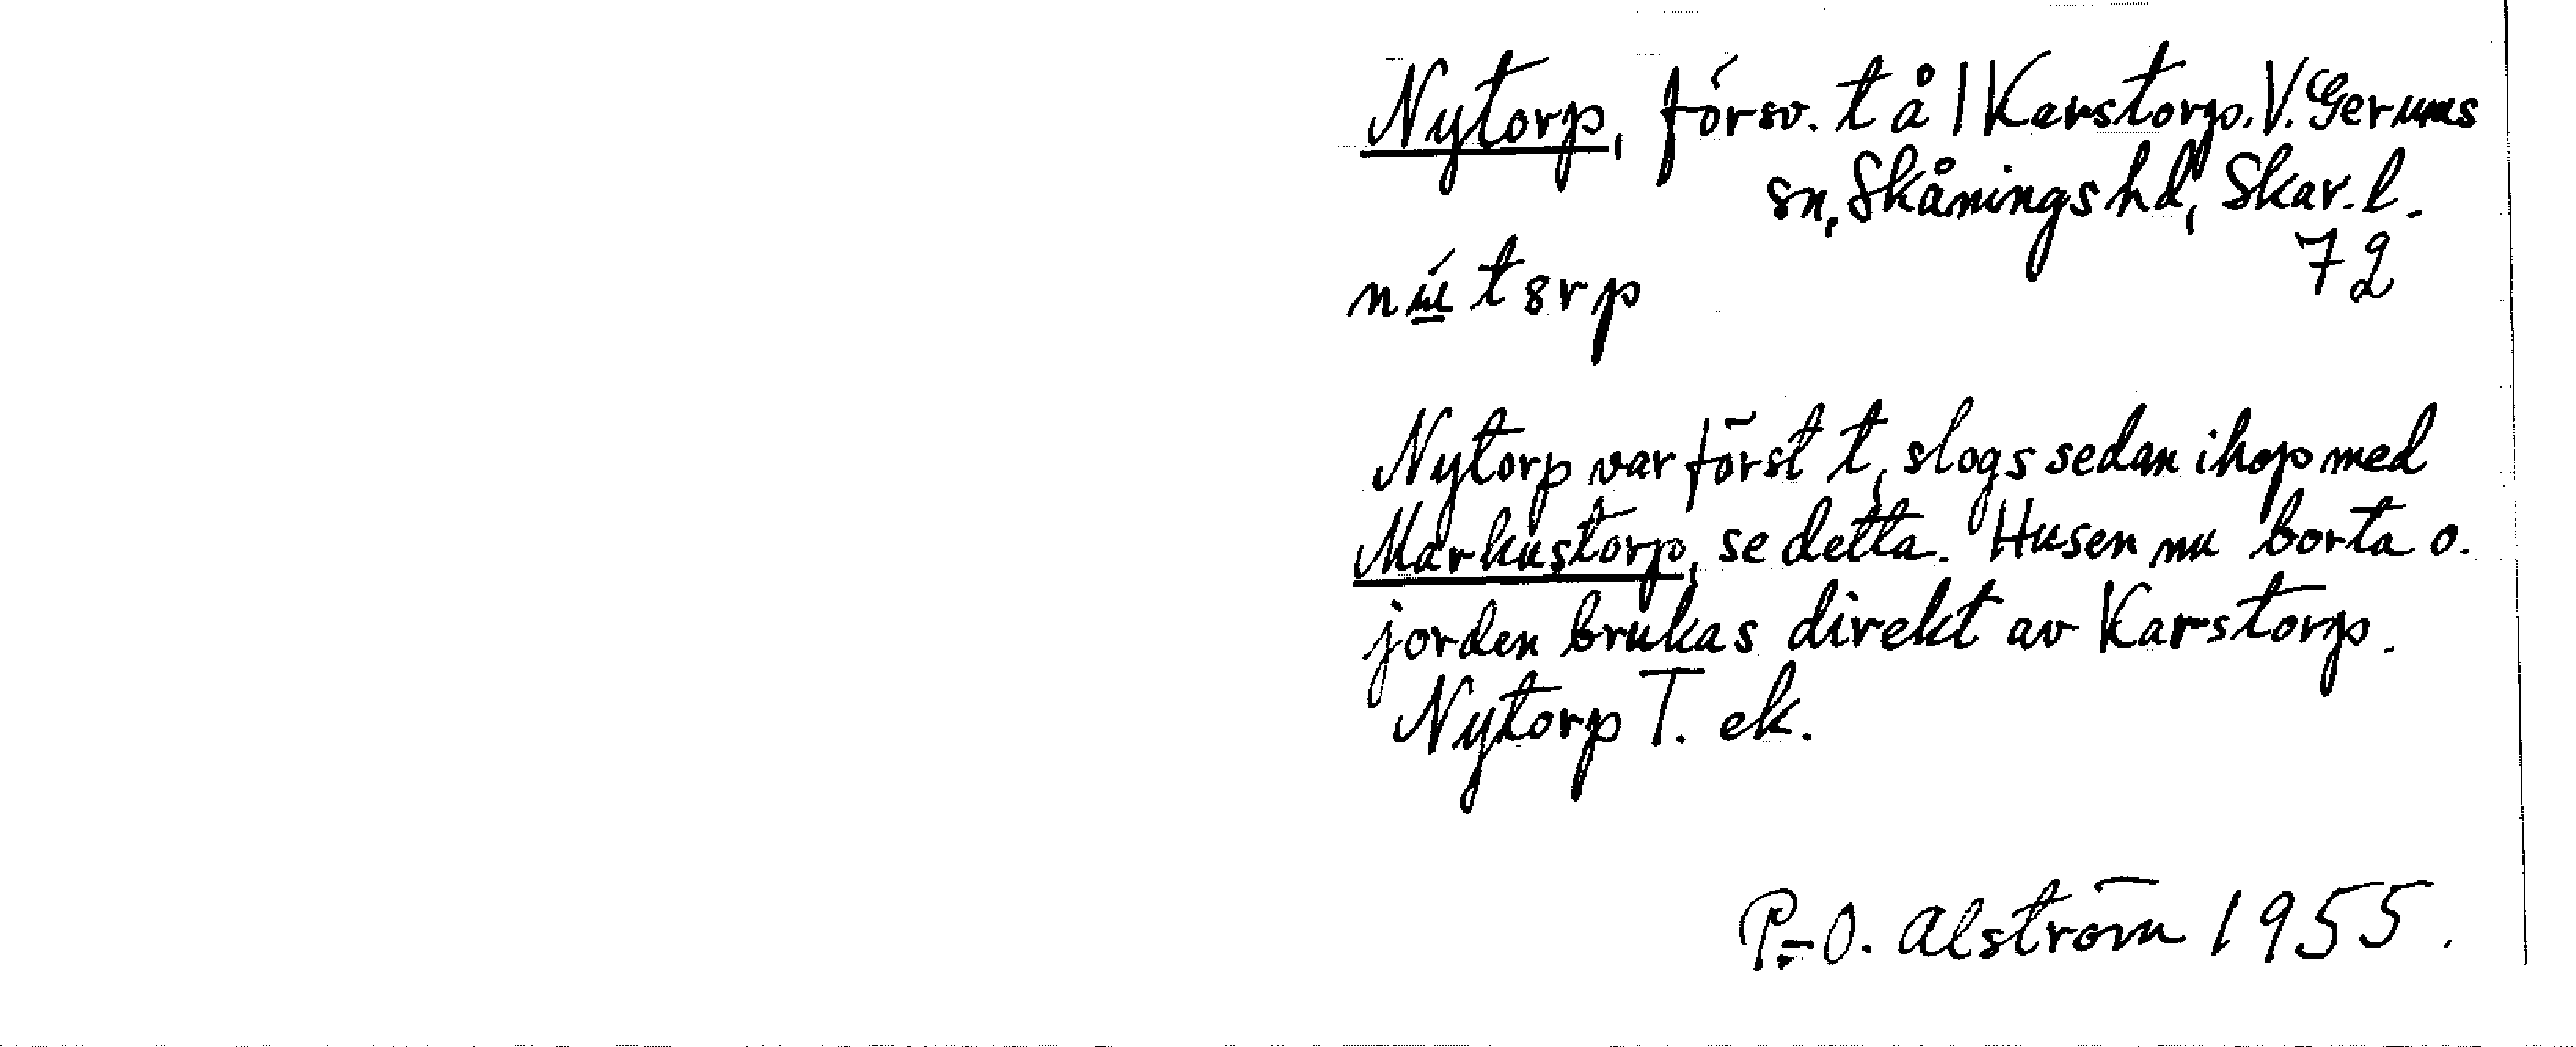 Nytorp, försv. t å 1 Karstorp. V. Gerums
sn, Skånings hd, Skar. l.
72
Nytorp var först t, slogs sedan ihop med
Markustorp, se detta. Husen nu borta o.
jorden brukas direkt av Karstorp.
Nytorp T. ek.
P.-O. Alström 1955.